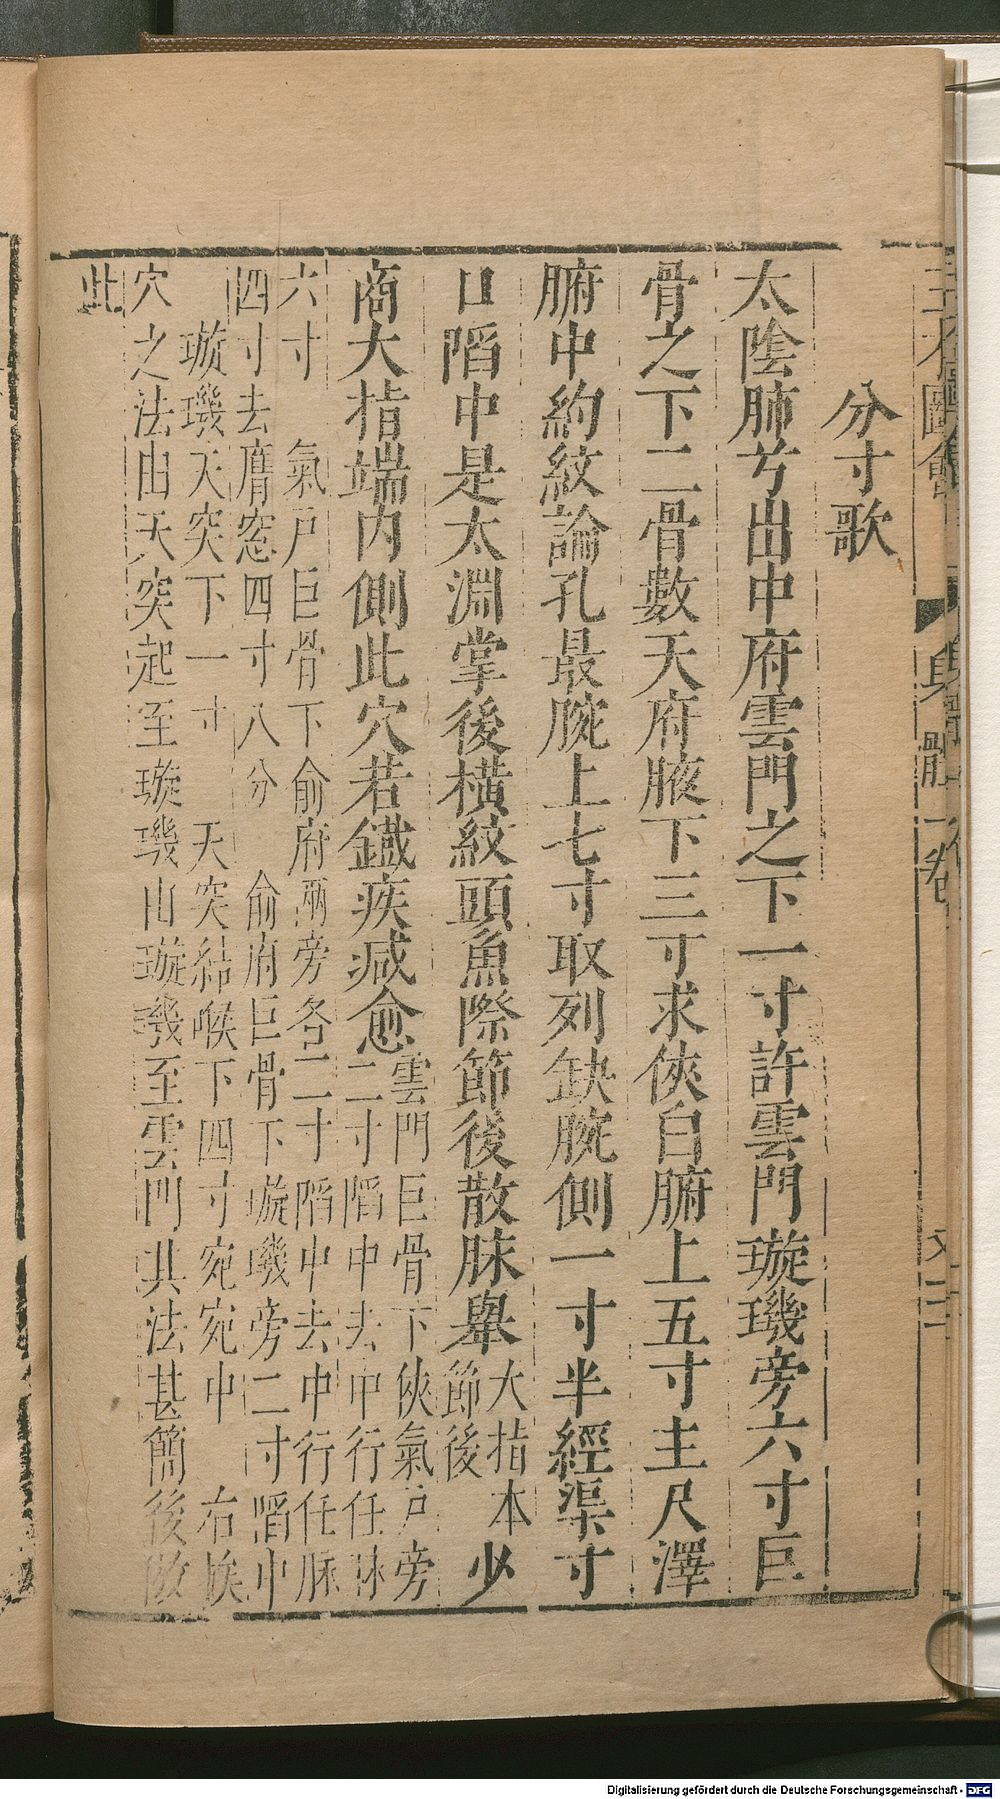 三才圖會 身體一卷
分寸歌
太陰肺兮出中府雲門之下一寸許雲門璇璣旁六寸巨
骨之下二骨數天府腋下三寸求俠白腑上五寸主尺澤
腑中約紋論孔最腕上七寸取列缺腕側一寸半經渠寸
口陷中是太淵掌後橫紋頭魚際節後散脉舉大指本節後少
商大指端內側此穴若鍼疾减愈雲門巨骨下俠氣戶旁二寸陷中去中行任脉
六寸 氣戶巨骨下俞府兩旁各二寸陷中去中行任脉
四寸去膺窓四寸八分 俞府巨骨下璇璣旁二寸陷中
璇璣天突下一寸 天突結喉下四寸宛宛中 右候
穴之法由天突起至璇璣由璇璣至雲門其法甚簡後倣
此
Digitalisierung gefördert durch die Deutsche Forschungsgemeinschaft - DFG